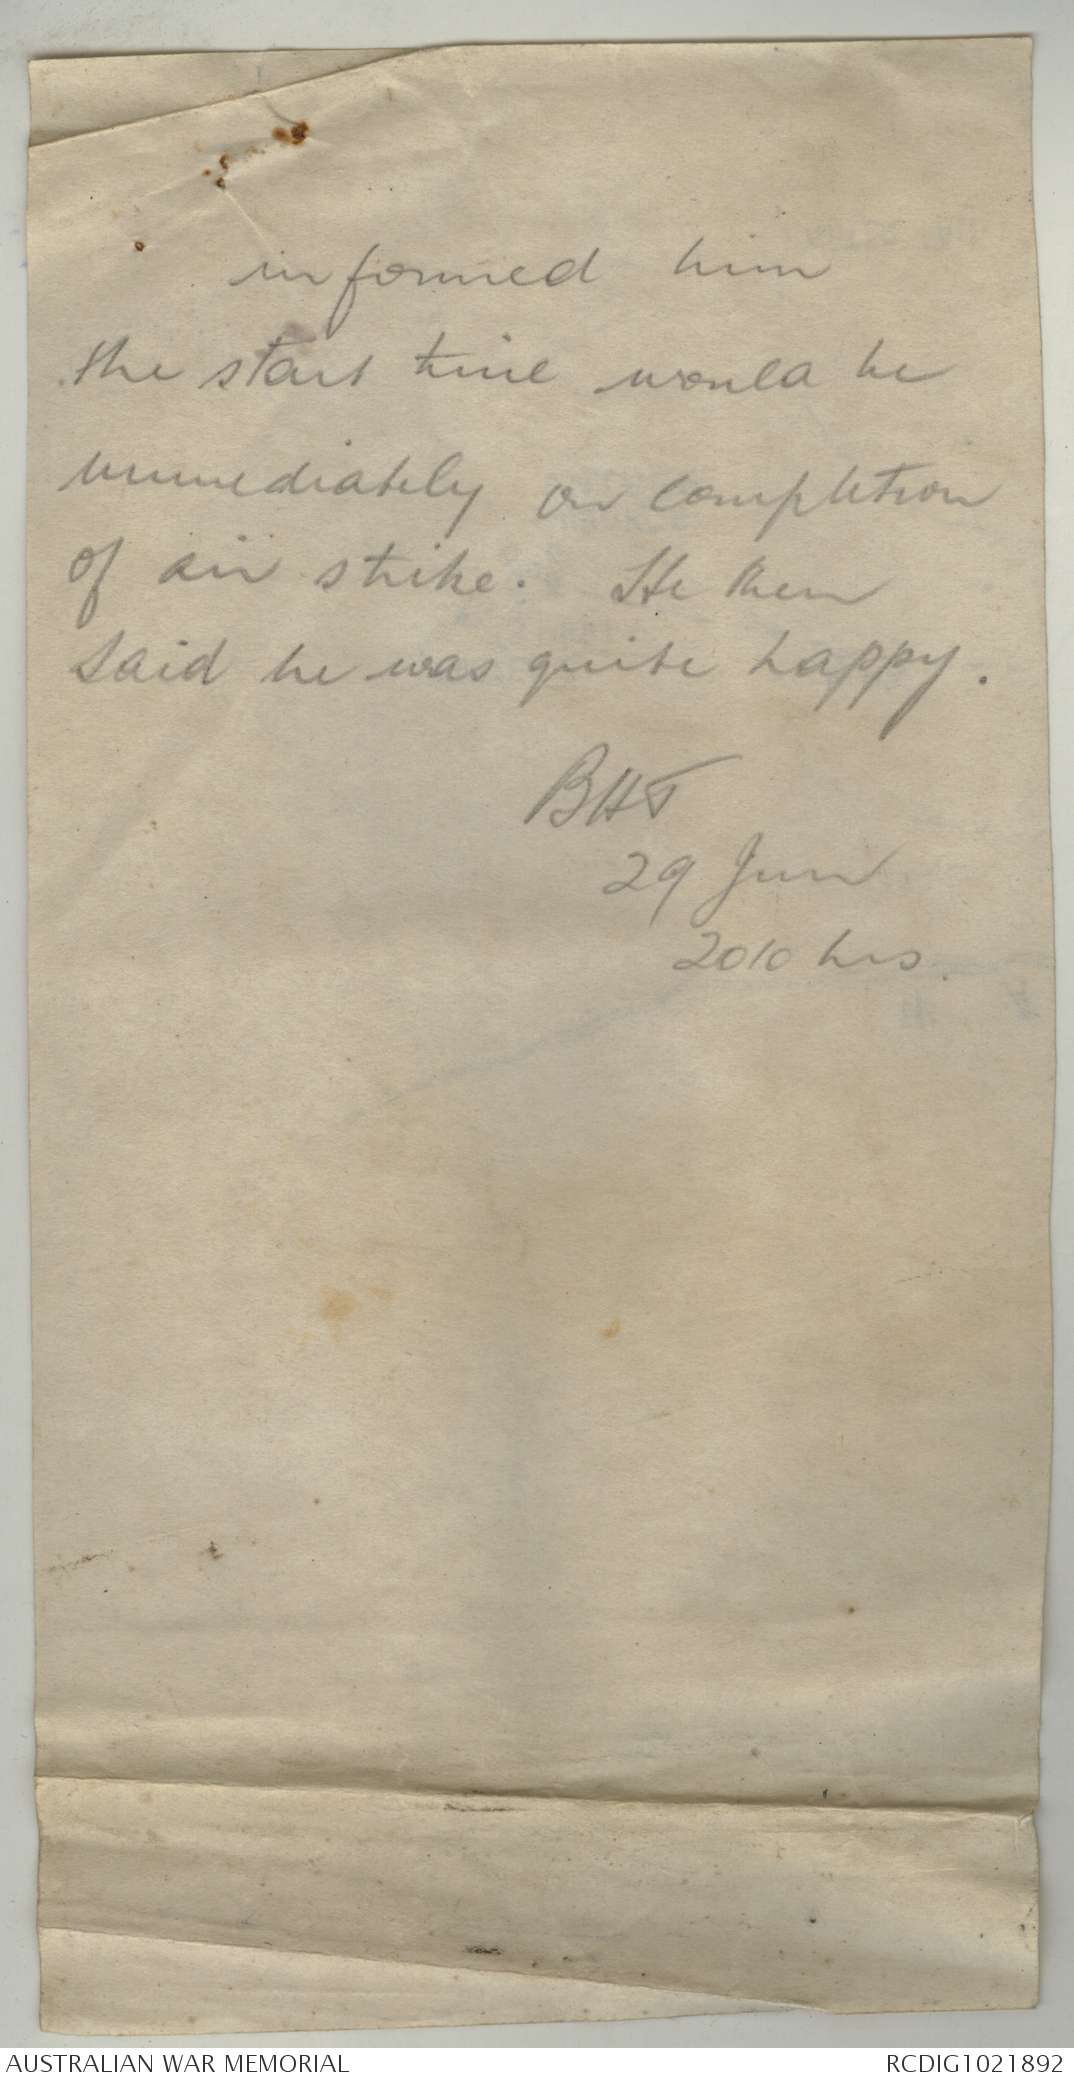 informed him
the start time would be
immediately on completion
of air strike. He then
said he was quite happy.
BHT
29 Jun
2010 hrs.
AUSTRALIAN WAR MEMORIAL
RCDIG1021892